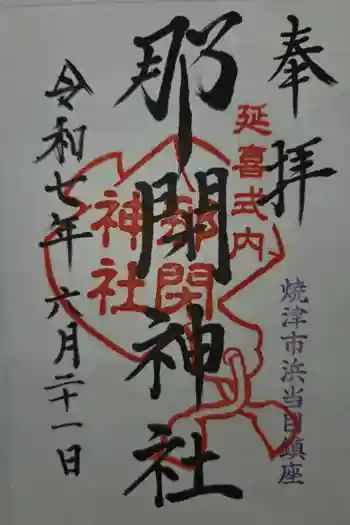 奉拝
延喜式内
焼津市浜当目鎮座
那閉神社
那閉
神社
令和七年六月二十一日